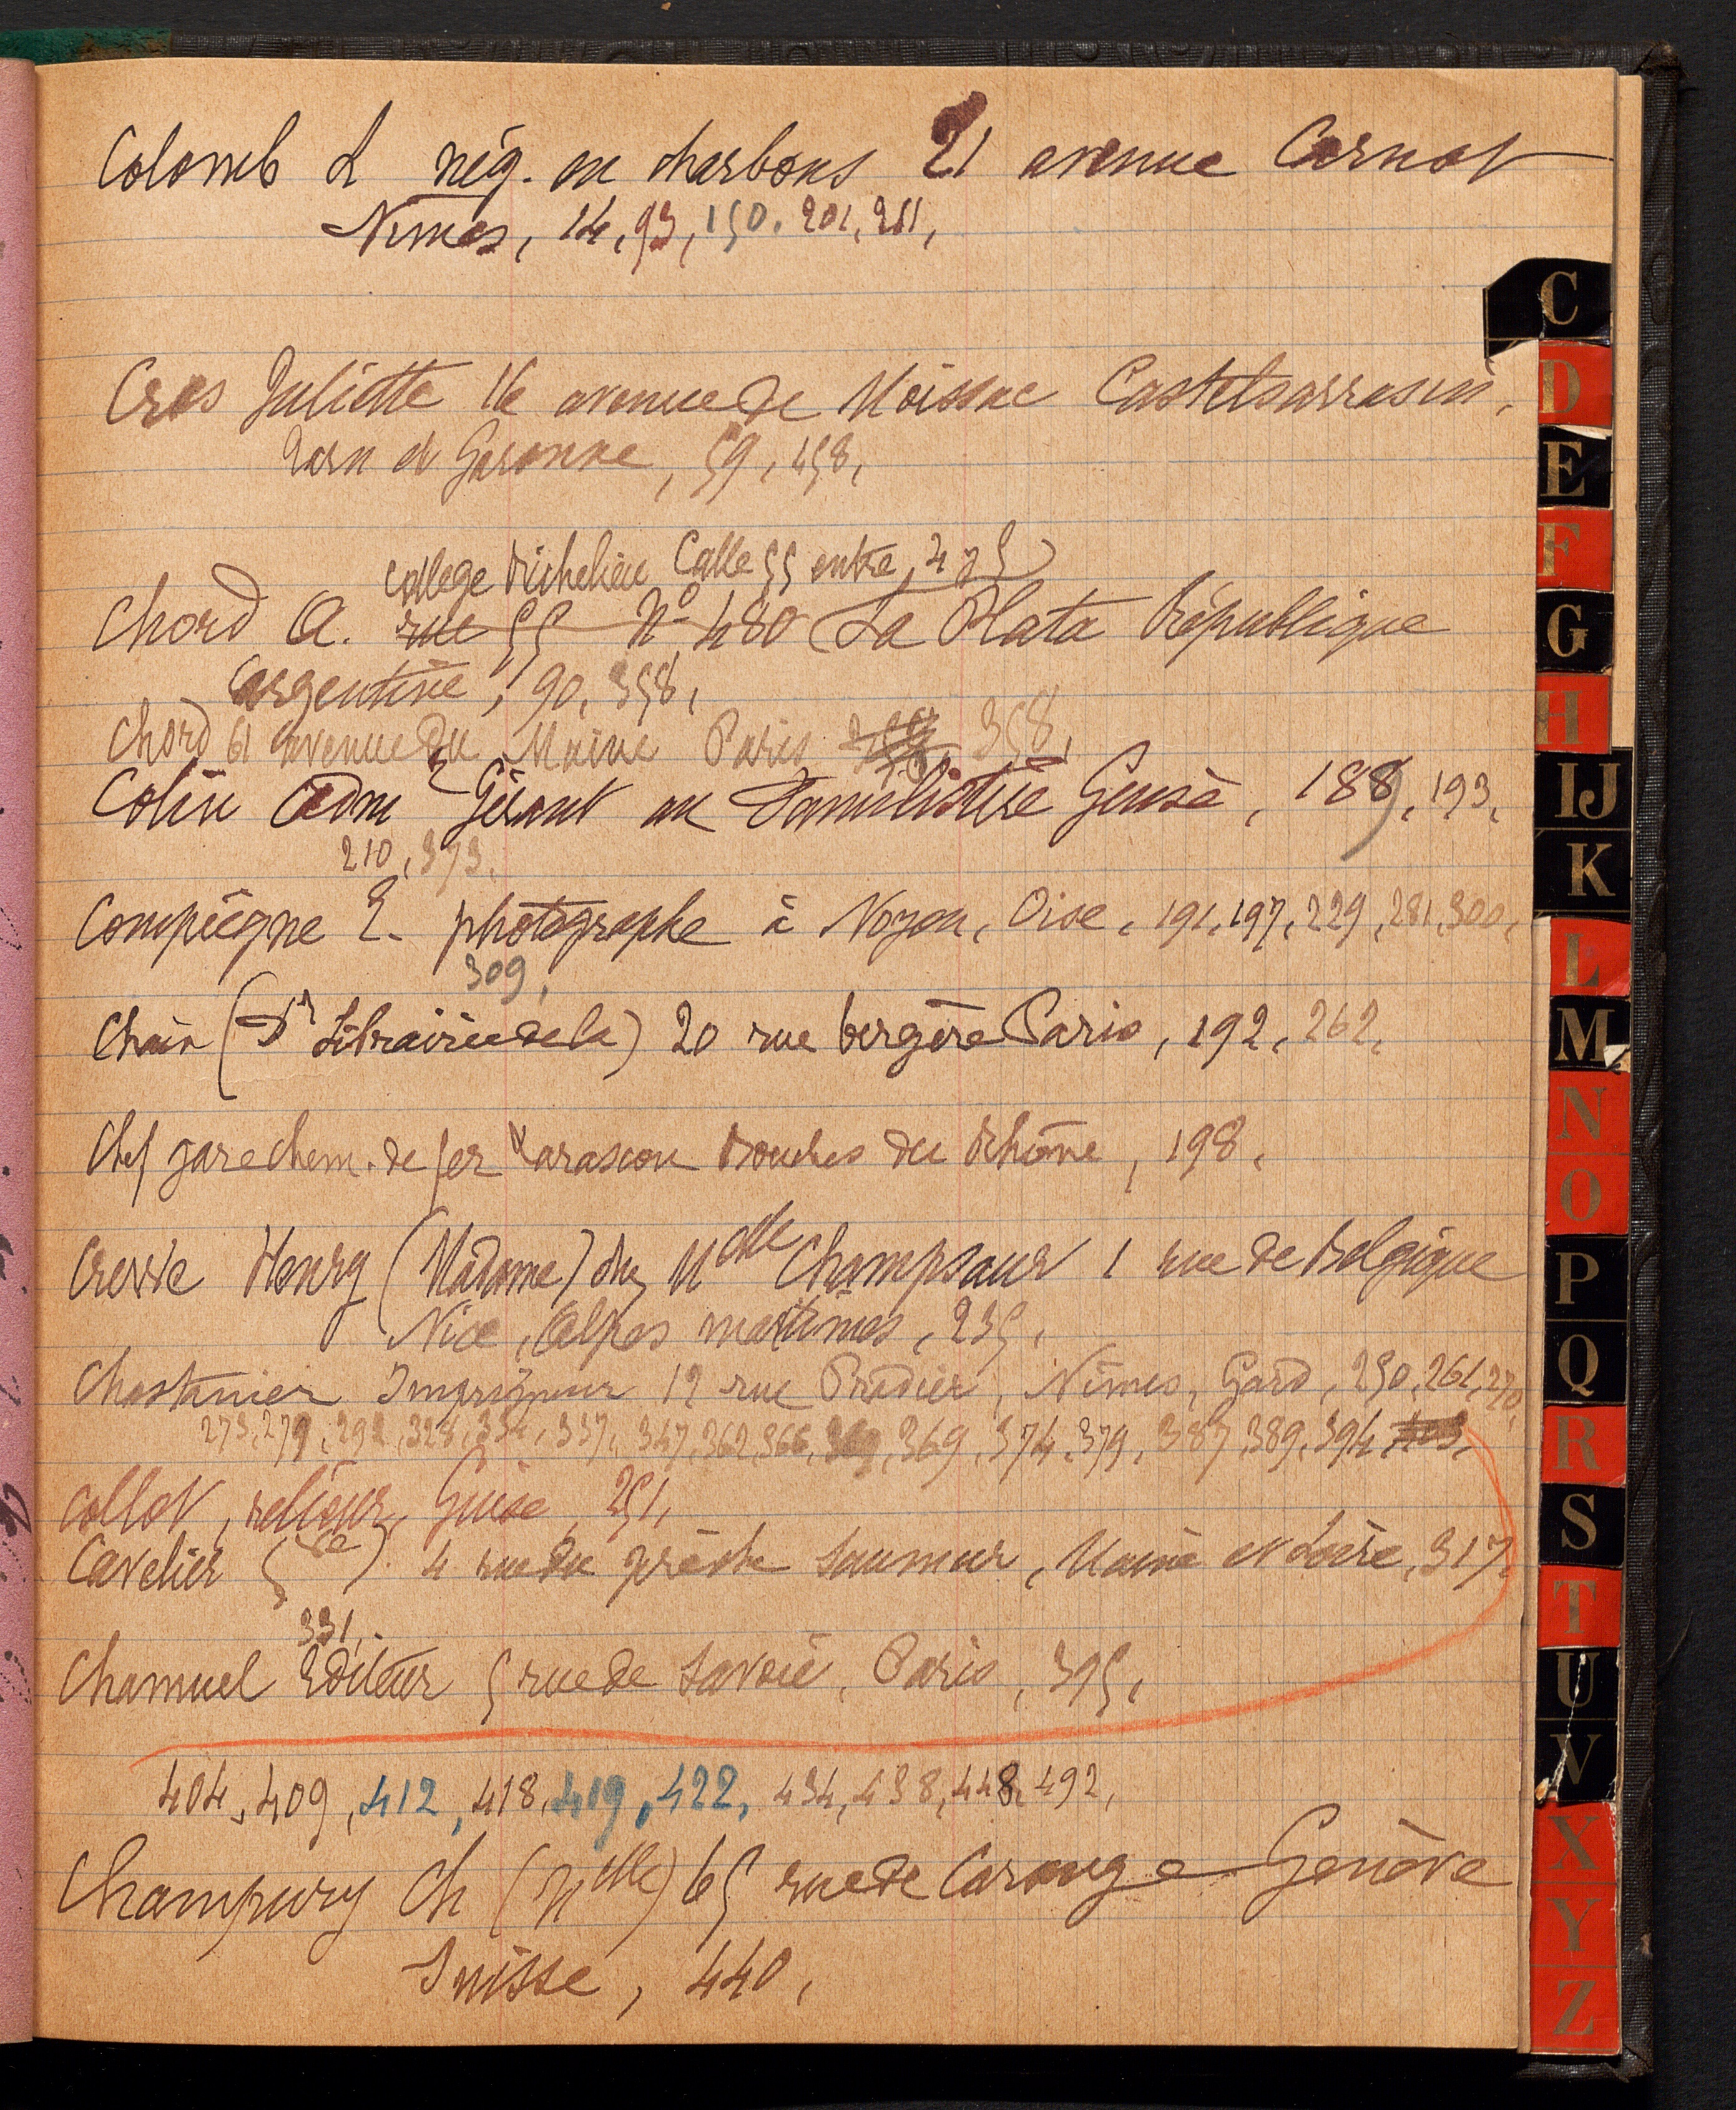 Colomb L nég. en charbons 21 avenue Carnot
Nimes, 14, 93, 150, 201, 211,
Cros Juliette 16 avenue de Moissac Castelsarrasin,
Tarn et Garonne, 59, 458,
college Richelieu Calle 55 entre 4 y 5
Chord A. rue 55 N° 480 La Plata République
Argentine, 90, 358,
Chord 61 avenue du Maine Paris 358,
Colin Adm r Gérant au Familistère Guise, 188, 193,
210, 373,
Compiègne E. photographe à Noyon, Oise, 191, 197, 229, 281, 300,
309,
Chaix (Dr Librairie de la) 20 rue bergère Paris, 192, 262,
Chef gare chem. de fer Tarascon Bouches du Rhône, 198,
Henry (Madame) chez Melle Champsaur 1 rue de Belgique
Nice, Alpes maritimes, 235,
Chastanier Imprimeur 12 rue Pradier, Nîmes, Gard, 250, 261, 270,
273, 279, 292, 328, 334, 337, 347, 362, 366, 369, 374, 379, 387, 389, 394, 403,
Collot, relieur, Guise, 251,
Cavelier (Ve) 4 rue du prêche Saumur, Maine et Loire, 317,
331,
Chamuel Editeur 5 rue de Savoie, Paris, 395,
404, 409, 412, 418, 419, 422, 434, 438, 448, 492,
Champury Ch (Melle) 65 rue de Carouge Genève
Suisse, 440,
C
D
E
F
G
H
IJ
K
L
M
N
O
P
Q
R
S
T
U
V
X
Y
Z